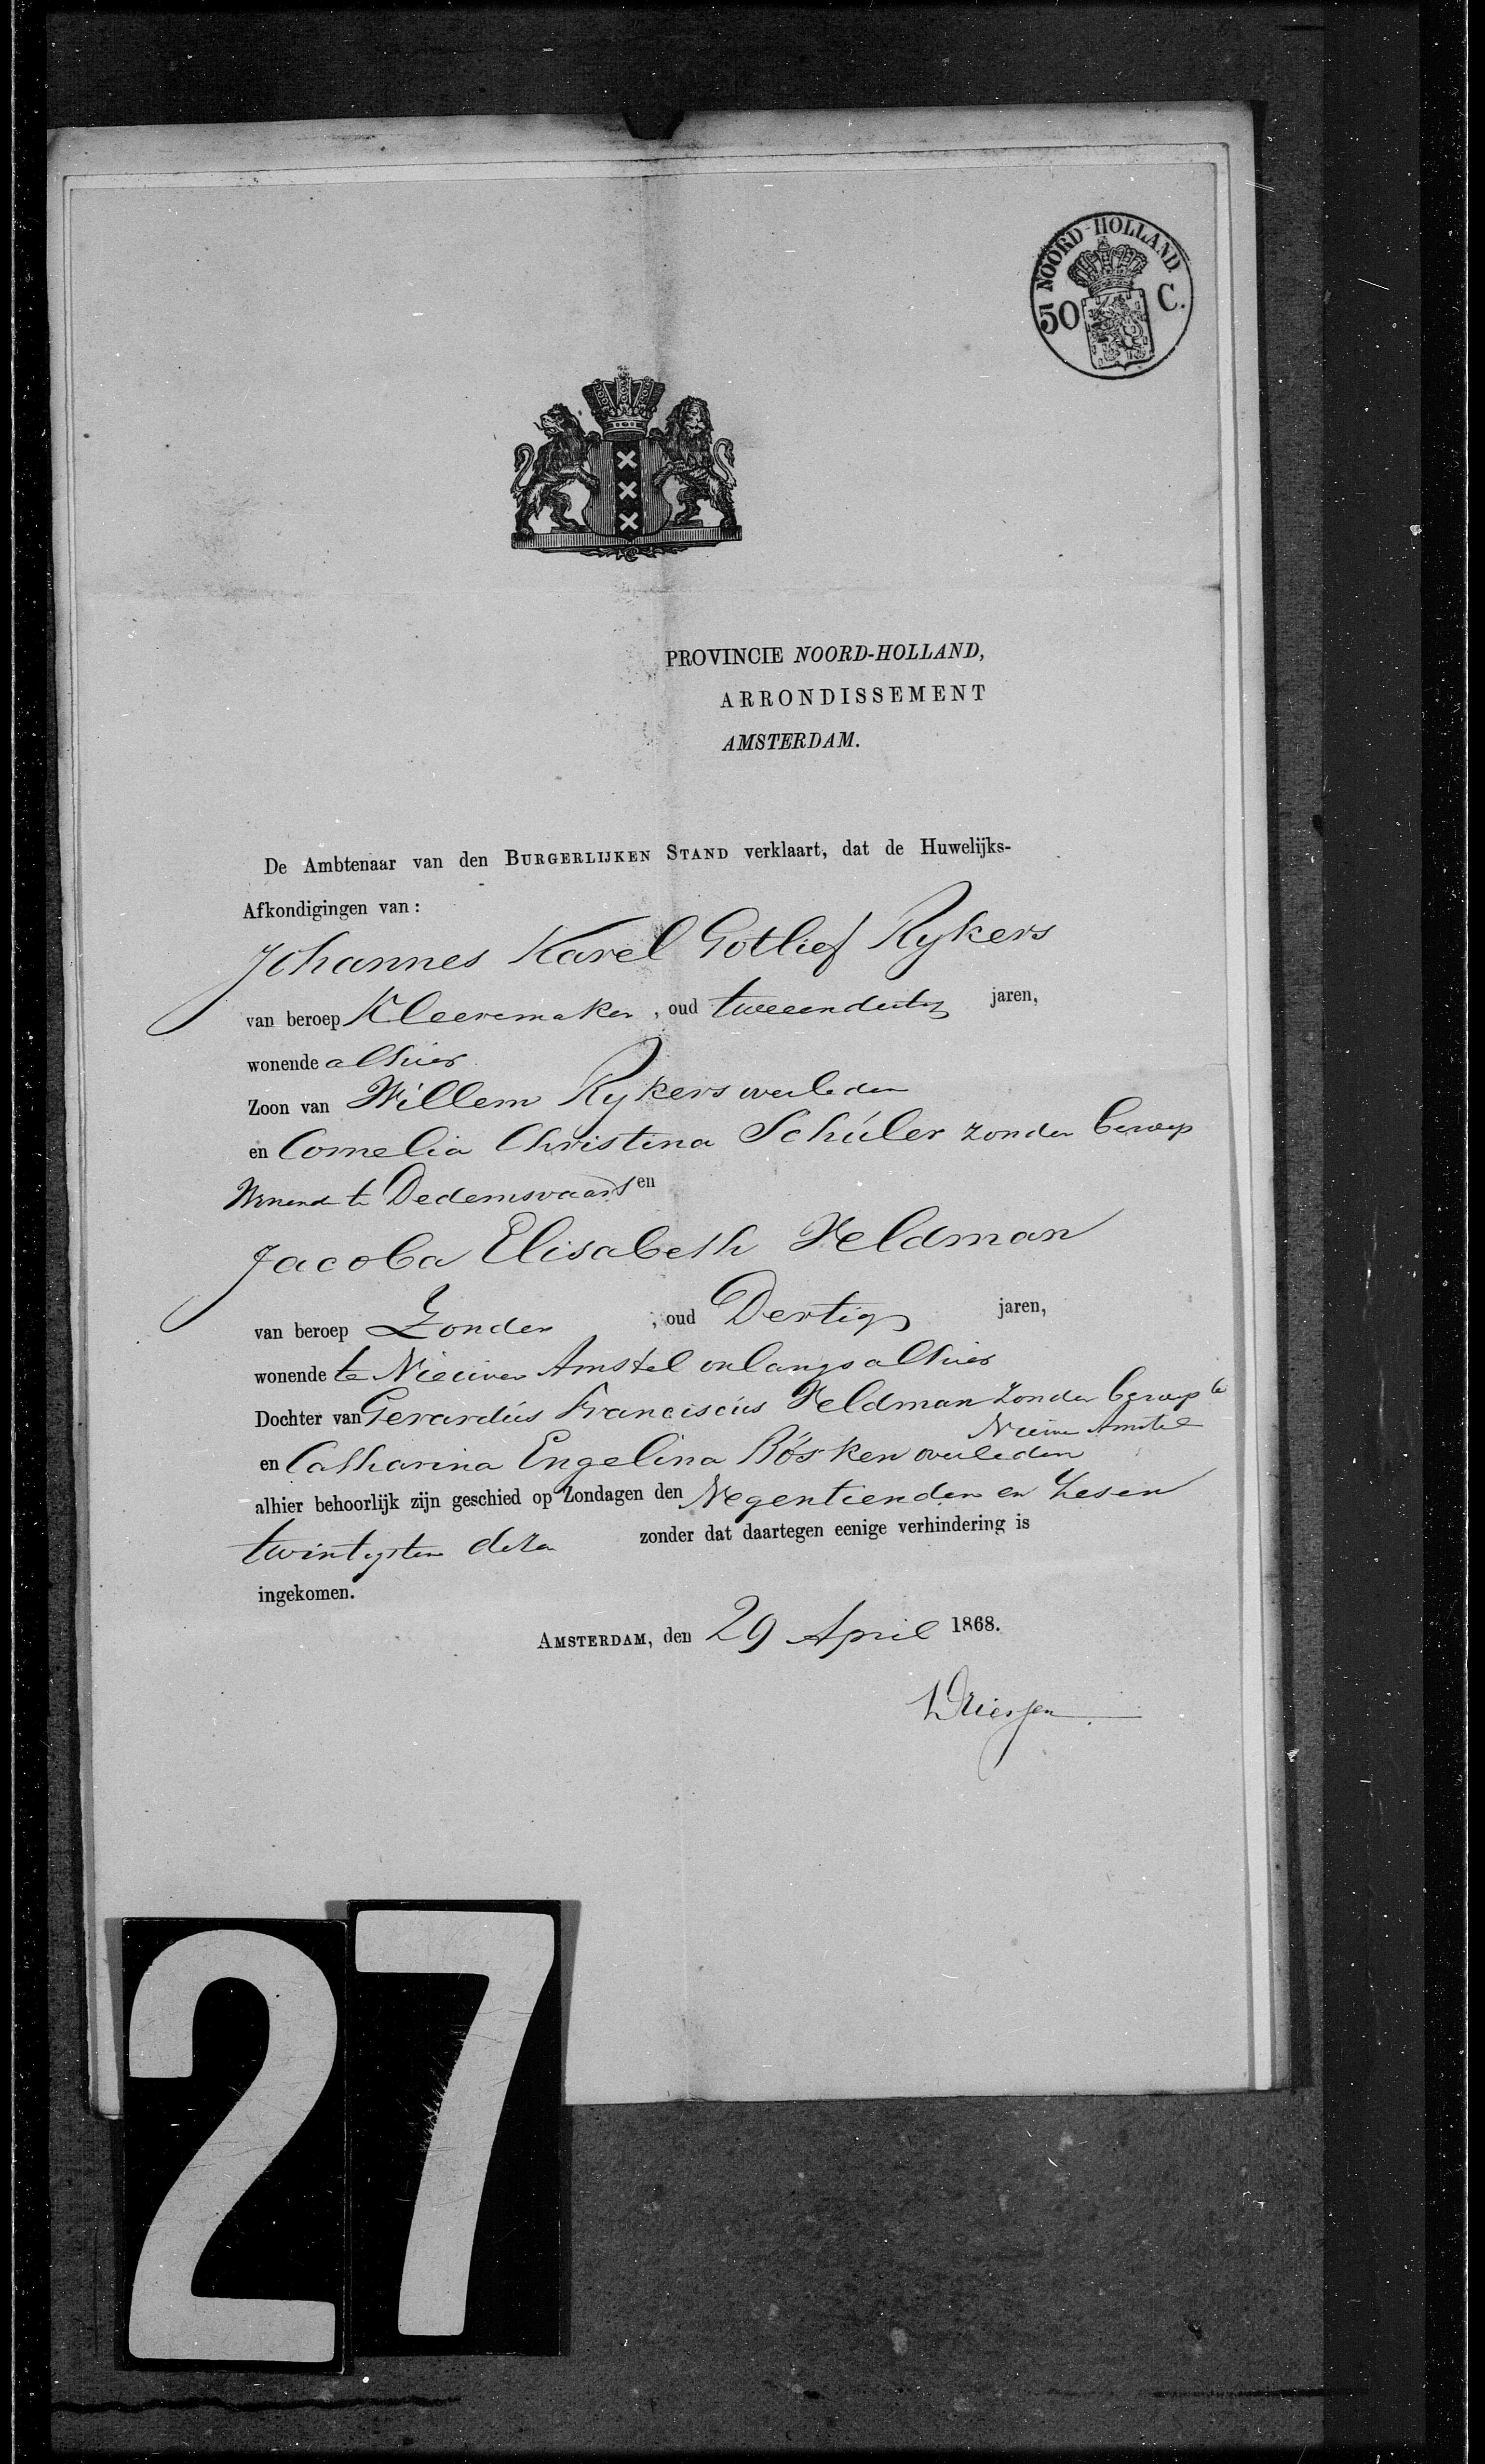 NOORD-HOLLAND
50 C.
PROVINCIE NOORD-HOLLAND,
ARRONDISSEMENT
AMSTERDAM.
De Ambtenaar van den BURGERLIJKEN STAND verklaart, dat de Huwelijks-
Afkondigingen van:
Johannes Karel Gotlief Rykers
van beroep Kleermaker, oud tweeendertig jaren,
wonende alhier
Zoon van Willem Rykers overleden
en Cornelia Christina Schúler zonder beroep
Wonende te Dedemsvaart en
Jacoba Elisabeth Veldman
van beroep Zonder, oud Dertig jaren,
wonende te Nieuwer Amstel onlangs alhier
Dochter van Gerardús Franciscus Veldman zonder beroep te
Nieuwer Amstel
en Catharina Engelina Bösken overleden
alhier behoorlijk zijn geschied op Zondagen den Negentienden en Zesen
twintigsten dezer zonder dat daartegen eenige verhindering is
ingekomen.
AMSTERDAM, den 29 April 1868.
27